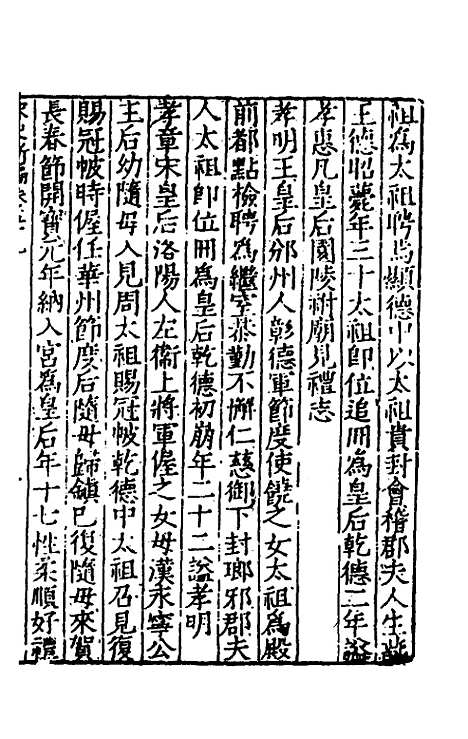 祖爲太祖聘焉顯德中以太祖貴封會稽郡夫人生燕
王德昭薨年三十太祖即位追冊爲皇后乾德二年謚
孝惠凡皇后園陵祔廟見禮志
孝明王皇后邠州人彰德軍節度使饒之女太祖爲殿
前都點檢聘爲繼室恭勤不懈仁慈御下封瑯邪郡夫
人太祖即位冊爲皇后乾德初崩年二十二謚孝明
孝章宋皇后洛陽人左衞上將軍偓之女母漢永寧公
主后幼隨母入見周太祖賜冠帔乾德中太祖召見復
賜冠帔時偓任華州節度后隨母歸鎮已復隨母來賀
長春節開寶元年納入宮爲皇后年十七性柔順好禮